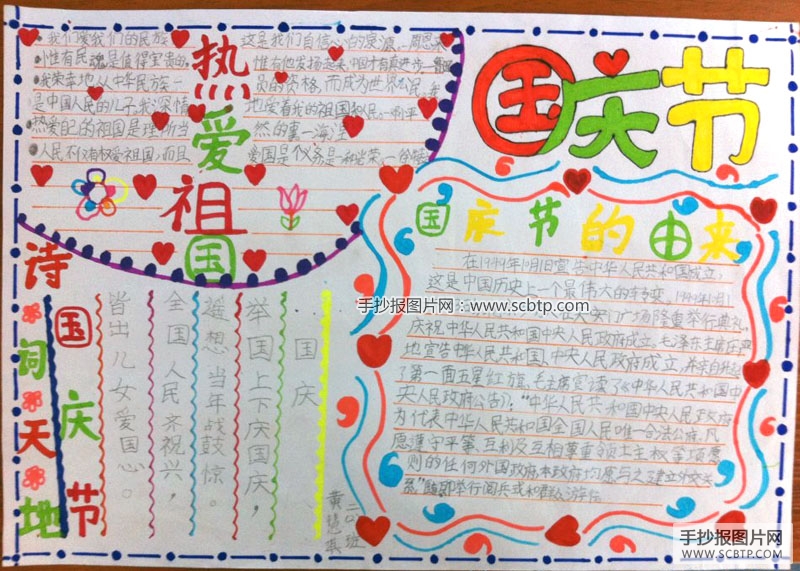 国庆节
热爱祖国
我们爱我们的民族 这是我们自信心的泉源。周恩来
惟有民魂是值得宝贵的, 惟有他发扬起来,中国才有真进步。
我荣幸地从中华民族一 员的资格,而成为世界公民。我
是中国人民的儿子,我深情 地爱着我的祖国和人民。邓小平
热爱自己的祖国是理所当 然的事。海涅
人民不仅有权爱祖国,而且 爱国是个义务,是一种光荣。
国庆节的由来
在1949年10月1日宣告中华人民共和国成立,
这是中国历史上一个最伟大的转变。1949年10月1
天安门广场隆重举行典礼,
庆祝中华人民共和国中央人民政府成立。毛泽东主席庄严
地宣告中华人民共和国,中央人民政府成立,并亲自升起
了第一面五星红旗。毛主席宣读了《中华人民共和国中
央人民政府公告》:“中华人民共和国中央人民政府
为代表中华人民共和国全国人民唯一合法政府。凡
愿遵守平等、互利及互相尊重领土主权等项原
则的任何外国政府,本政府均愿与之建立外交关
系”随即举行阅兵式和群众游行
诗词天地
国庆节
国庆
举国上下庆国庆,
遥想当年战鼓惊。
全国人民齐祝兴,
皆出儿女爱国心。
手抄报图片网:www.scbtp.com
手抄报图片网
WWW.SCBTP.COM